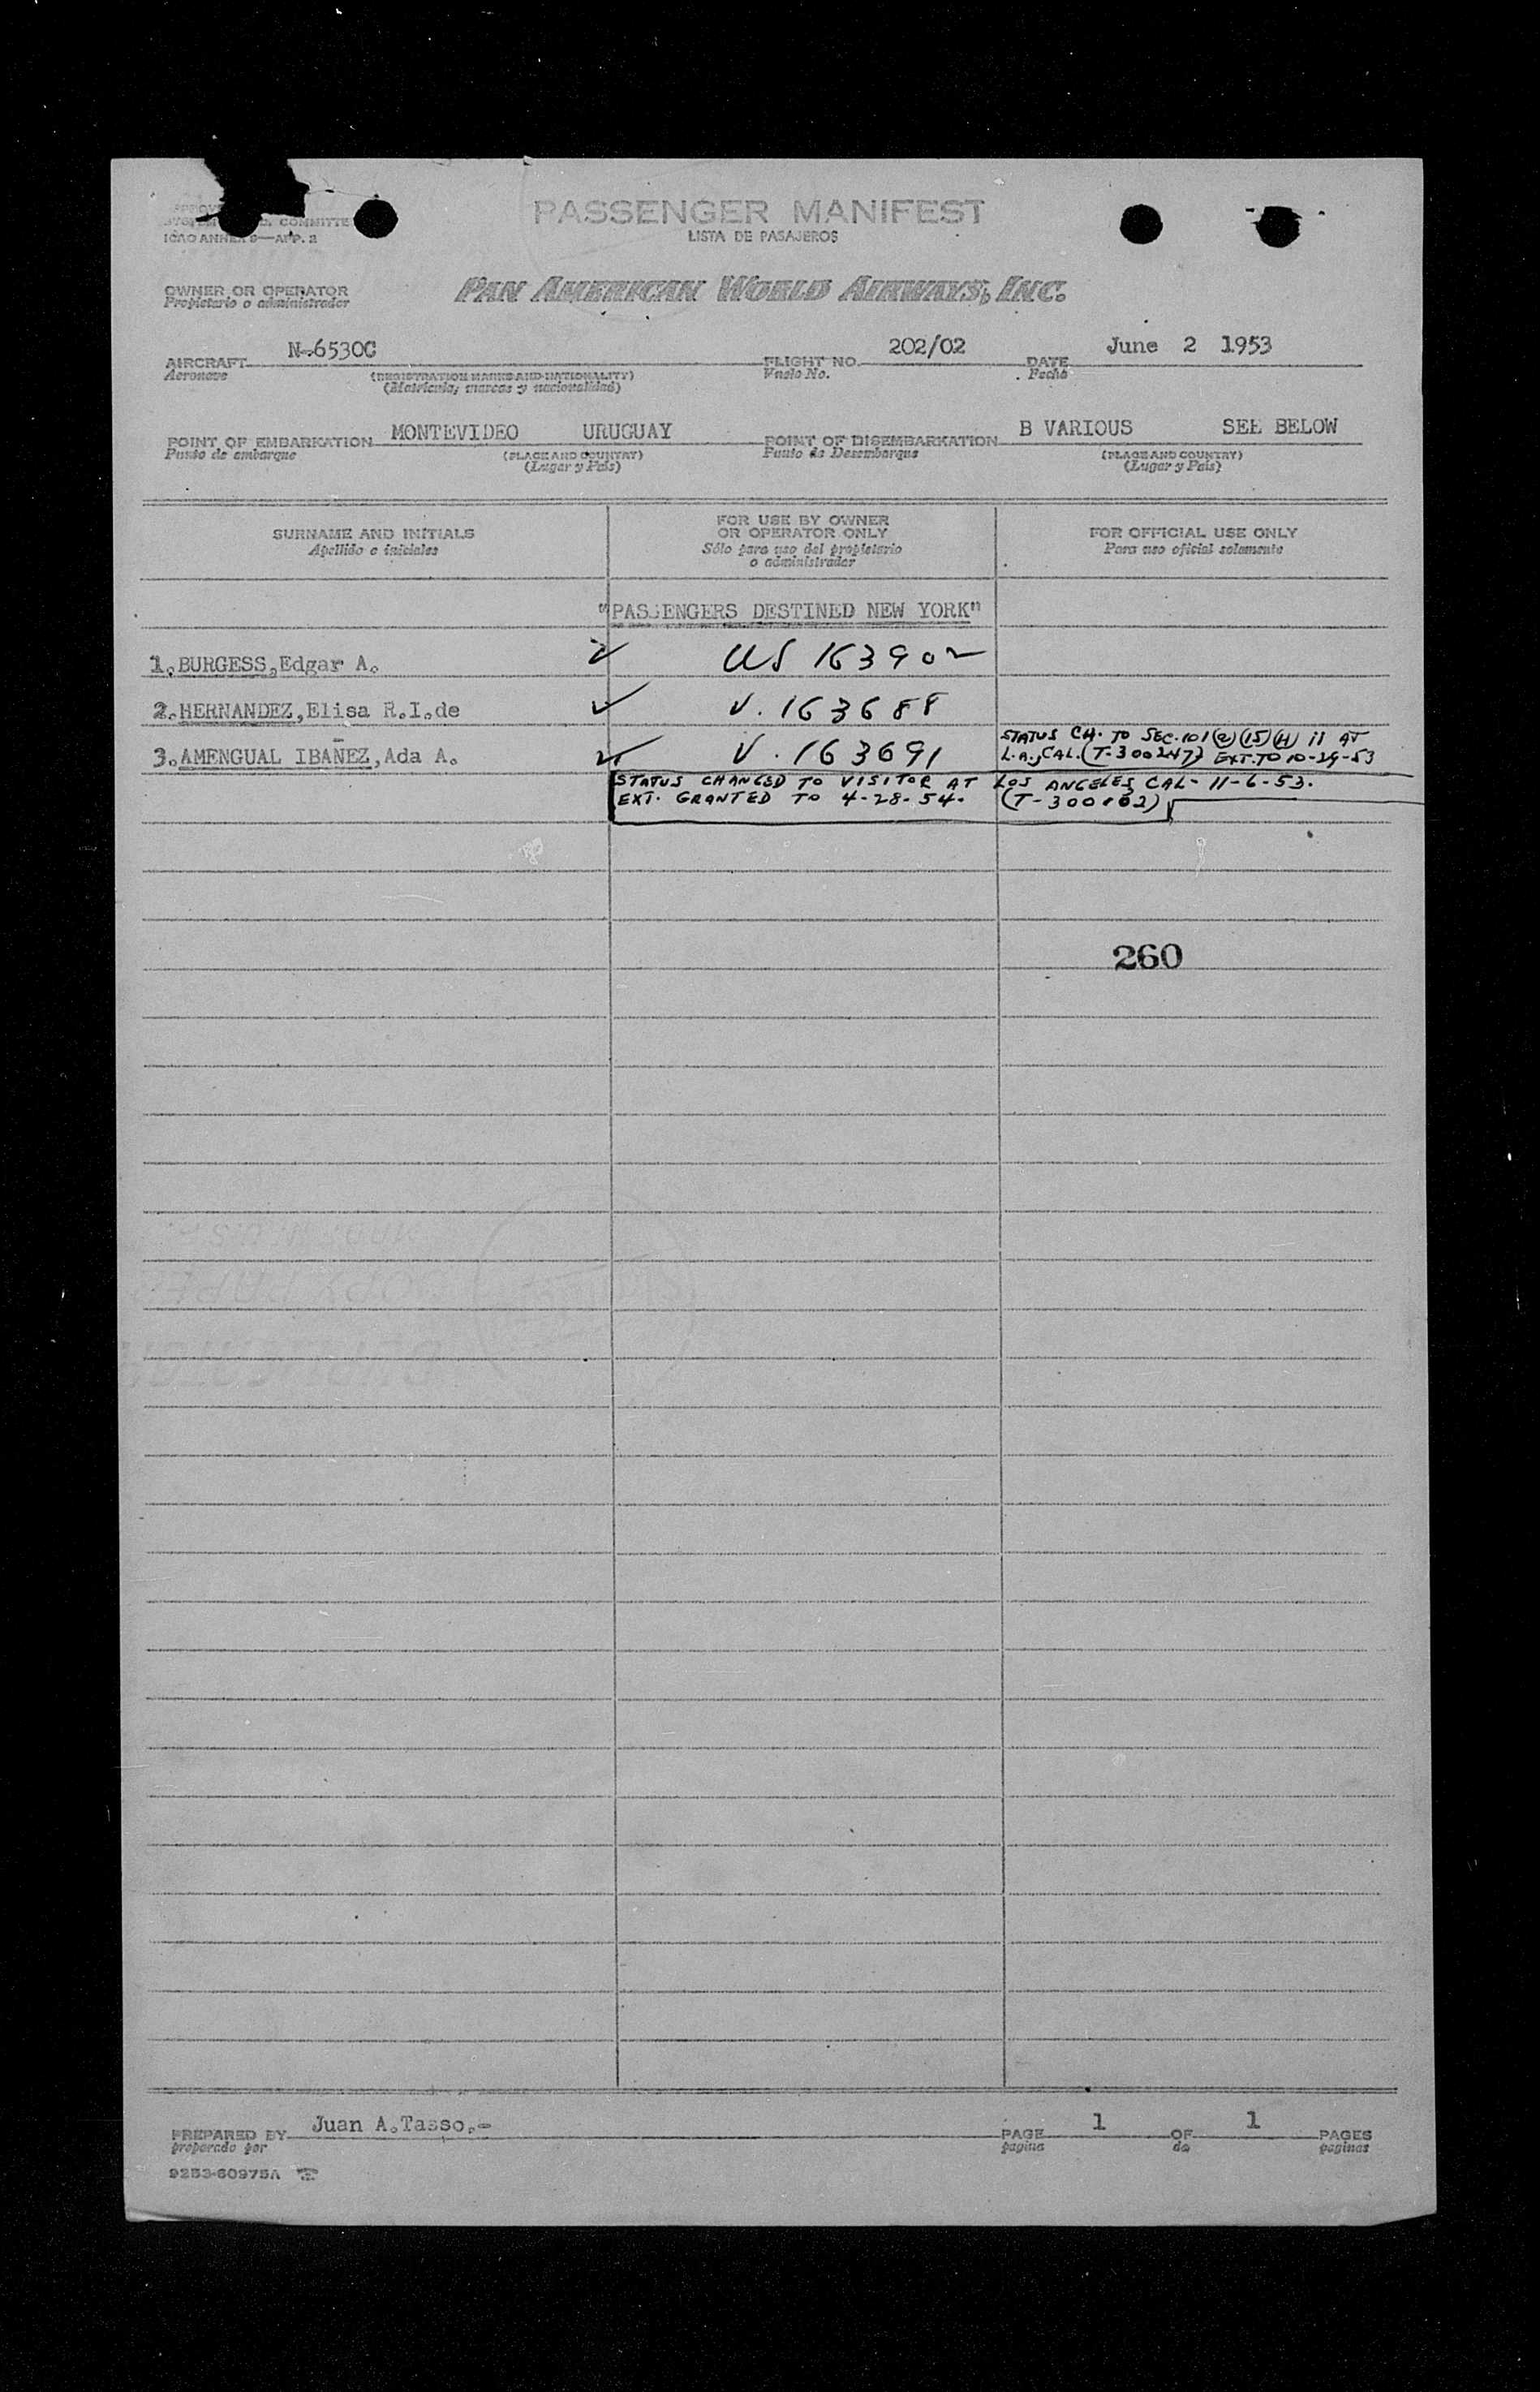 PASSENGER MANIFEST
LISTA DE PASAJEROS
COMMITTE
ICAO ANNEX 9—APP. 2
OWNER OR OPERATOR
Propietario o administrador
PAN AMERICAN WORLD AIRWAYS, INC.
AIRCRAFT N-6530C FLIGHT NO. 202/02 DATE June 2 1953
Aeronave (REGISTRATION MARKS AND NATIONALITY) Vuelo No. Fecha
(Matrícula, marcas y nacionalidad)
POINT OF EMBARKATION MONTEVIDEO URUGUAY POINT OF DISEMBARKATION B VARIOUS SEE BELOW
Punto de embarque (PLACE AND COUNTRY) Punto de Desembarque (PLACE AND COUNTRY)
(Lugar y País) (Lugar y País)
SURNAME AND INITIALS
Apellido e iniciales
FOR USE BY OWNER
OR OPERATOR ONLY
Sólo para uso del propietario
o administrador
FOR OFFICIAL USE ONLY
Para uso oficial solamente
"PASSENGERS DESTINED NEW YORK"
1. BURGESS, Edgar A. ✓ US 163902
2. HERNANDEZ, Elisa R.I.de ✓ V. 163688
3. AMENGUAL IBAÑEZ, Ada A. ✓ V. 163691
STATUS CH. TO SEC. 101 (a) (15) (H) ii AT
L.A., CAL. (T-300247) EXT. TO 10-29-53
STATUS CHANGED TO VISITOR AT LOS ANGELES, CAL- 11-6-53.
EXT. GRANTED TO 4-28-54.
260
PREPARED BY Juan A.Tasso.- PAGE 1 OF 1 PAGES
preparado por página de páginas
9253-60975A